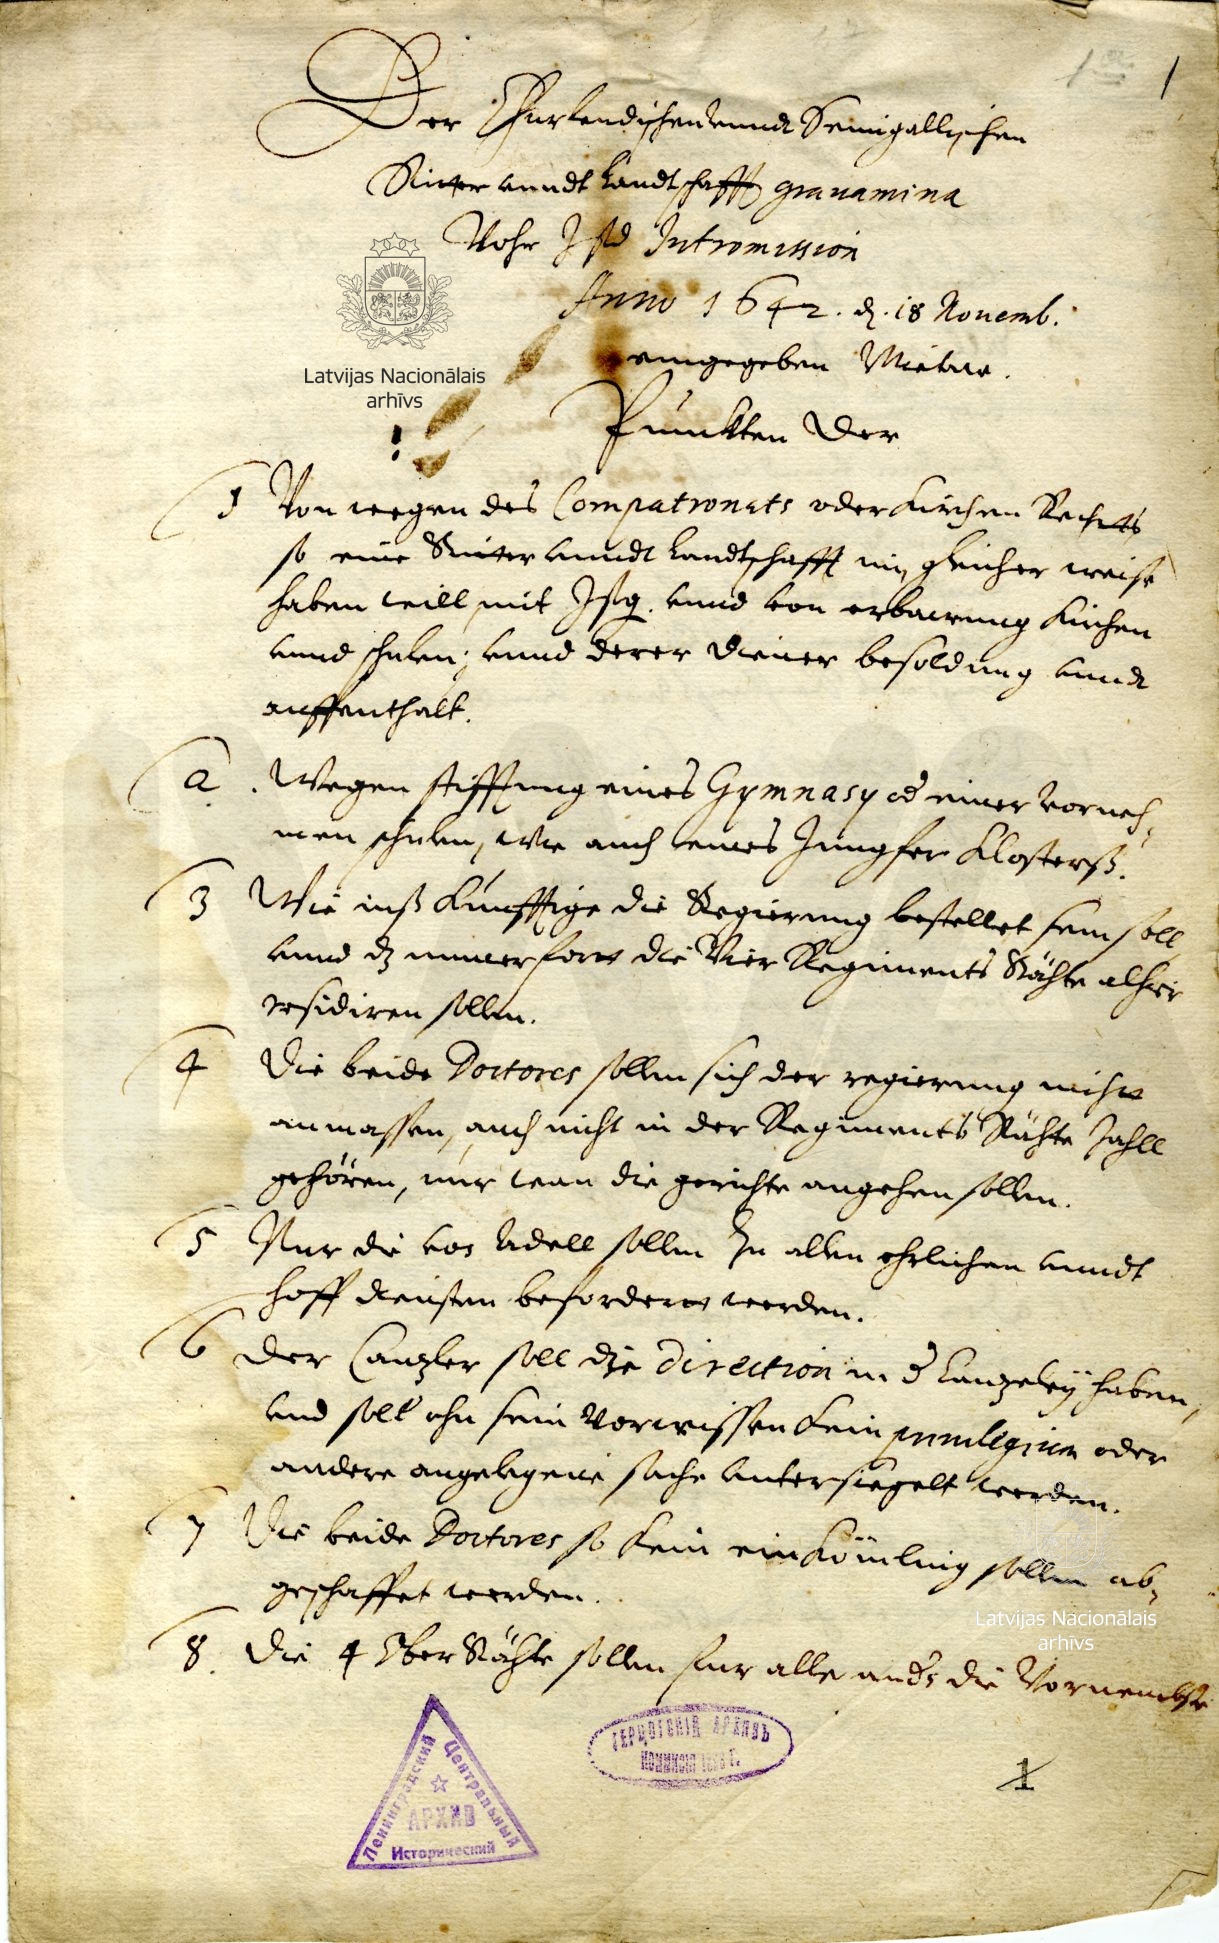 1
Der Churlendischen unndt Semigallischen
Ritter unndt Landtschafft gravamina
Vohr Jstd Intromission
Anno 1642. d. 18 Novemb.
eingegeben Mietaw.
Latvijas Nacionālais
arhīvs
Punckten der
1 Von wegen des Compatronats oder Kirchen Rechts
so eine Ritter unndt Landtschafft in gleicher weise
haben will mit unnd von erbawung Kirchen
unnd schulen; unnd derer diener besoldung unndt
auffenthalt.
2. Wegen stifftung eines Gymnasy od einer vorneh-
men schulen, wie auch eines Jungfer Klosterß.
3 Wie inß künfftige die Regierung bestellet sein soll
unnd dz immerfort die Vier Regiments Rähte alhier
residiren sollen.
4 Die beide Doctores sollen sich der regierung nicht
anmassen, auch nicht in der Regiments Rähte Zahll
gehören, nur wan die gerichte angehen sollen.
5 Nur die von Adell sollen Zu allen ehrlichen unndt
hoff diensten befordert werden.
6 Der Cantzler soll die direction in d Cantzeley haben,
und soll ohn sein vorwissen kein privilegium oder
andere angelegene sache untersiegelt werden.
7 Die beide Doctores so kein einkömling sollen ab-
geschaffet werden.
8. Die 4 Ober Rähte sollen fur alle andr die Vornembste
Latvijas Nacionālais
arhīvs
Ленинградский
Центральный
АРХИВ
Исторический
ГЕРЦОГСКІЙ АРХИВЪ
1